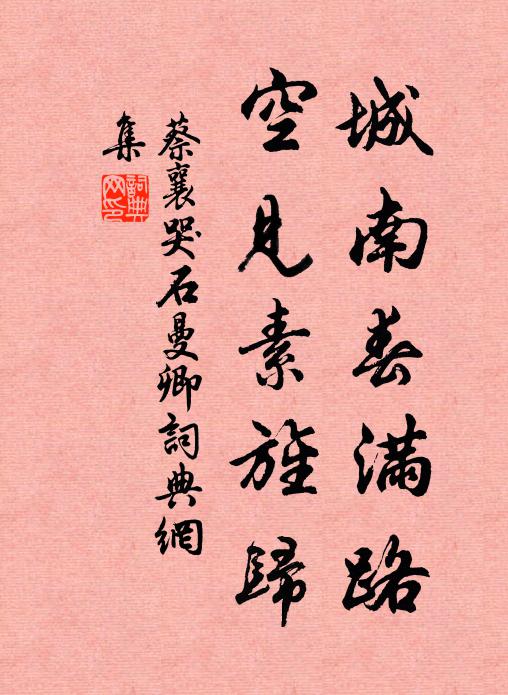 城南春滿路
空見素旌歸
蔡襄哭石曼卿詞典網
集
詞典
网印